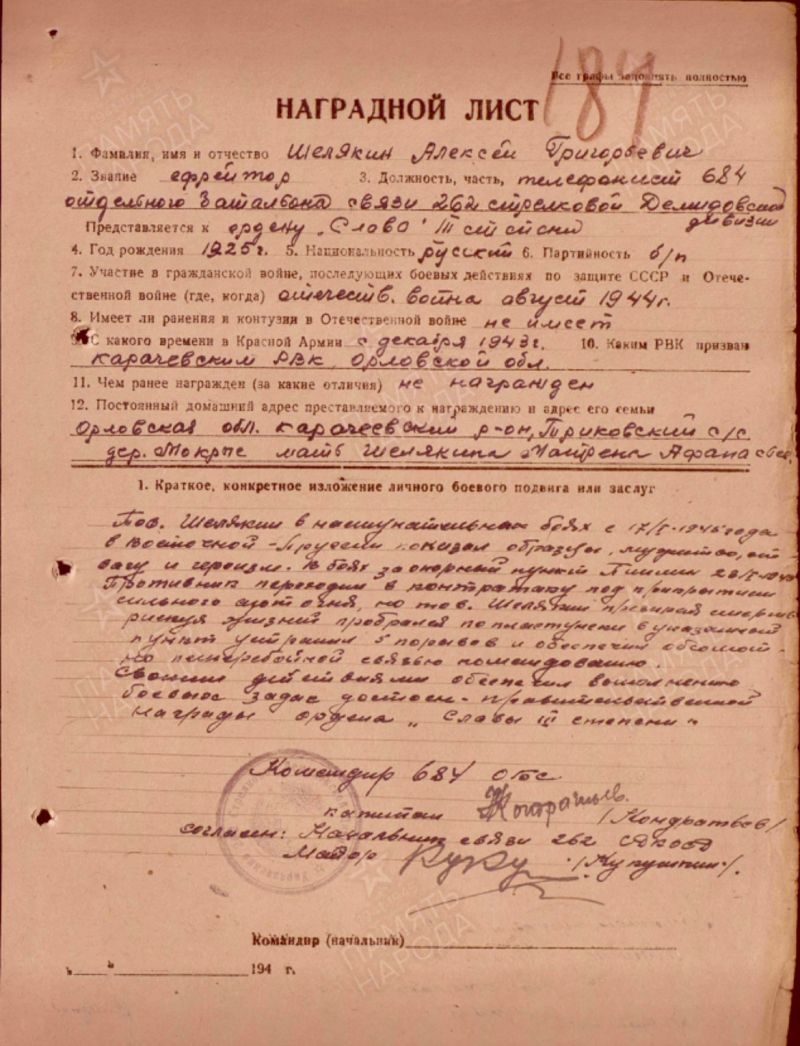 184
Все графы заполнять полностью
НАГРАДНОЙ ЛИСТ
1. Фамилия, имя и отчество Шелякин Алексей Григорьевич
2. Звание ефрейтор 3. Должность, часть, телефонист 684
отдельного баталъона связи 262 стрелковой Демидовской
дивизии
Представляется к ордену „Слава" III степени
4. Год рождения 1925 г. 5. Национальность русский 6. Партийность б/п
7. Участие в гражданской войне, последующих боевых действиях по защите СССР и Отече-
ственной войне (где, когда) отечеств. война август 1944 г.
8. Имеет ли ранения и контузии в Отечественной войне не имеет
9. С какого времени в Красной Армии с декабря 1943 г. 10. Каким РВК призван
Карачевским РВК, Орловской обл.
11. Чем ранее награжден (за какие отличия) не награжден
12. Постоянный домашний адрес преставляемого к награждению и адрес его семьи
Орловская обл. Карачеевский р-он, с/с
дер. мать Шелякина Матрена
1. Краткое, конкретное изложение личного боевого подвига или заслуг
Тов. Шелякин в наступательных боях с
в Восточной-Пруссии показал образцы, мужества, от
вагу и героизм. В боях за опорный пункт
Противник переходил в контратаку под прикрытием
сильного огня, но тов. Шелякин
рискуя жизний пробрался по пластунски в указанной
пункт устранил 5 порывов и обеспечил
но бесперебойной связью командованию.
Своими действиями обеспечил выполнению
боевых задач достоен-правительственной
награды ордена „Славы III степени"
Командир 684 обс
капитан /Кондратьев/
согласен: Начальник связи 262
Майор
Командир (начальник)
„ " 194 г.
ПАМЯТЬ
НАРОДА